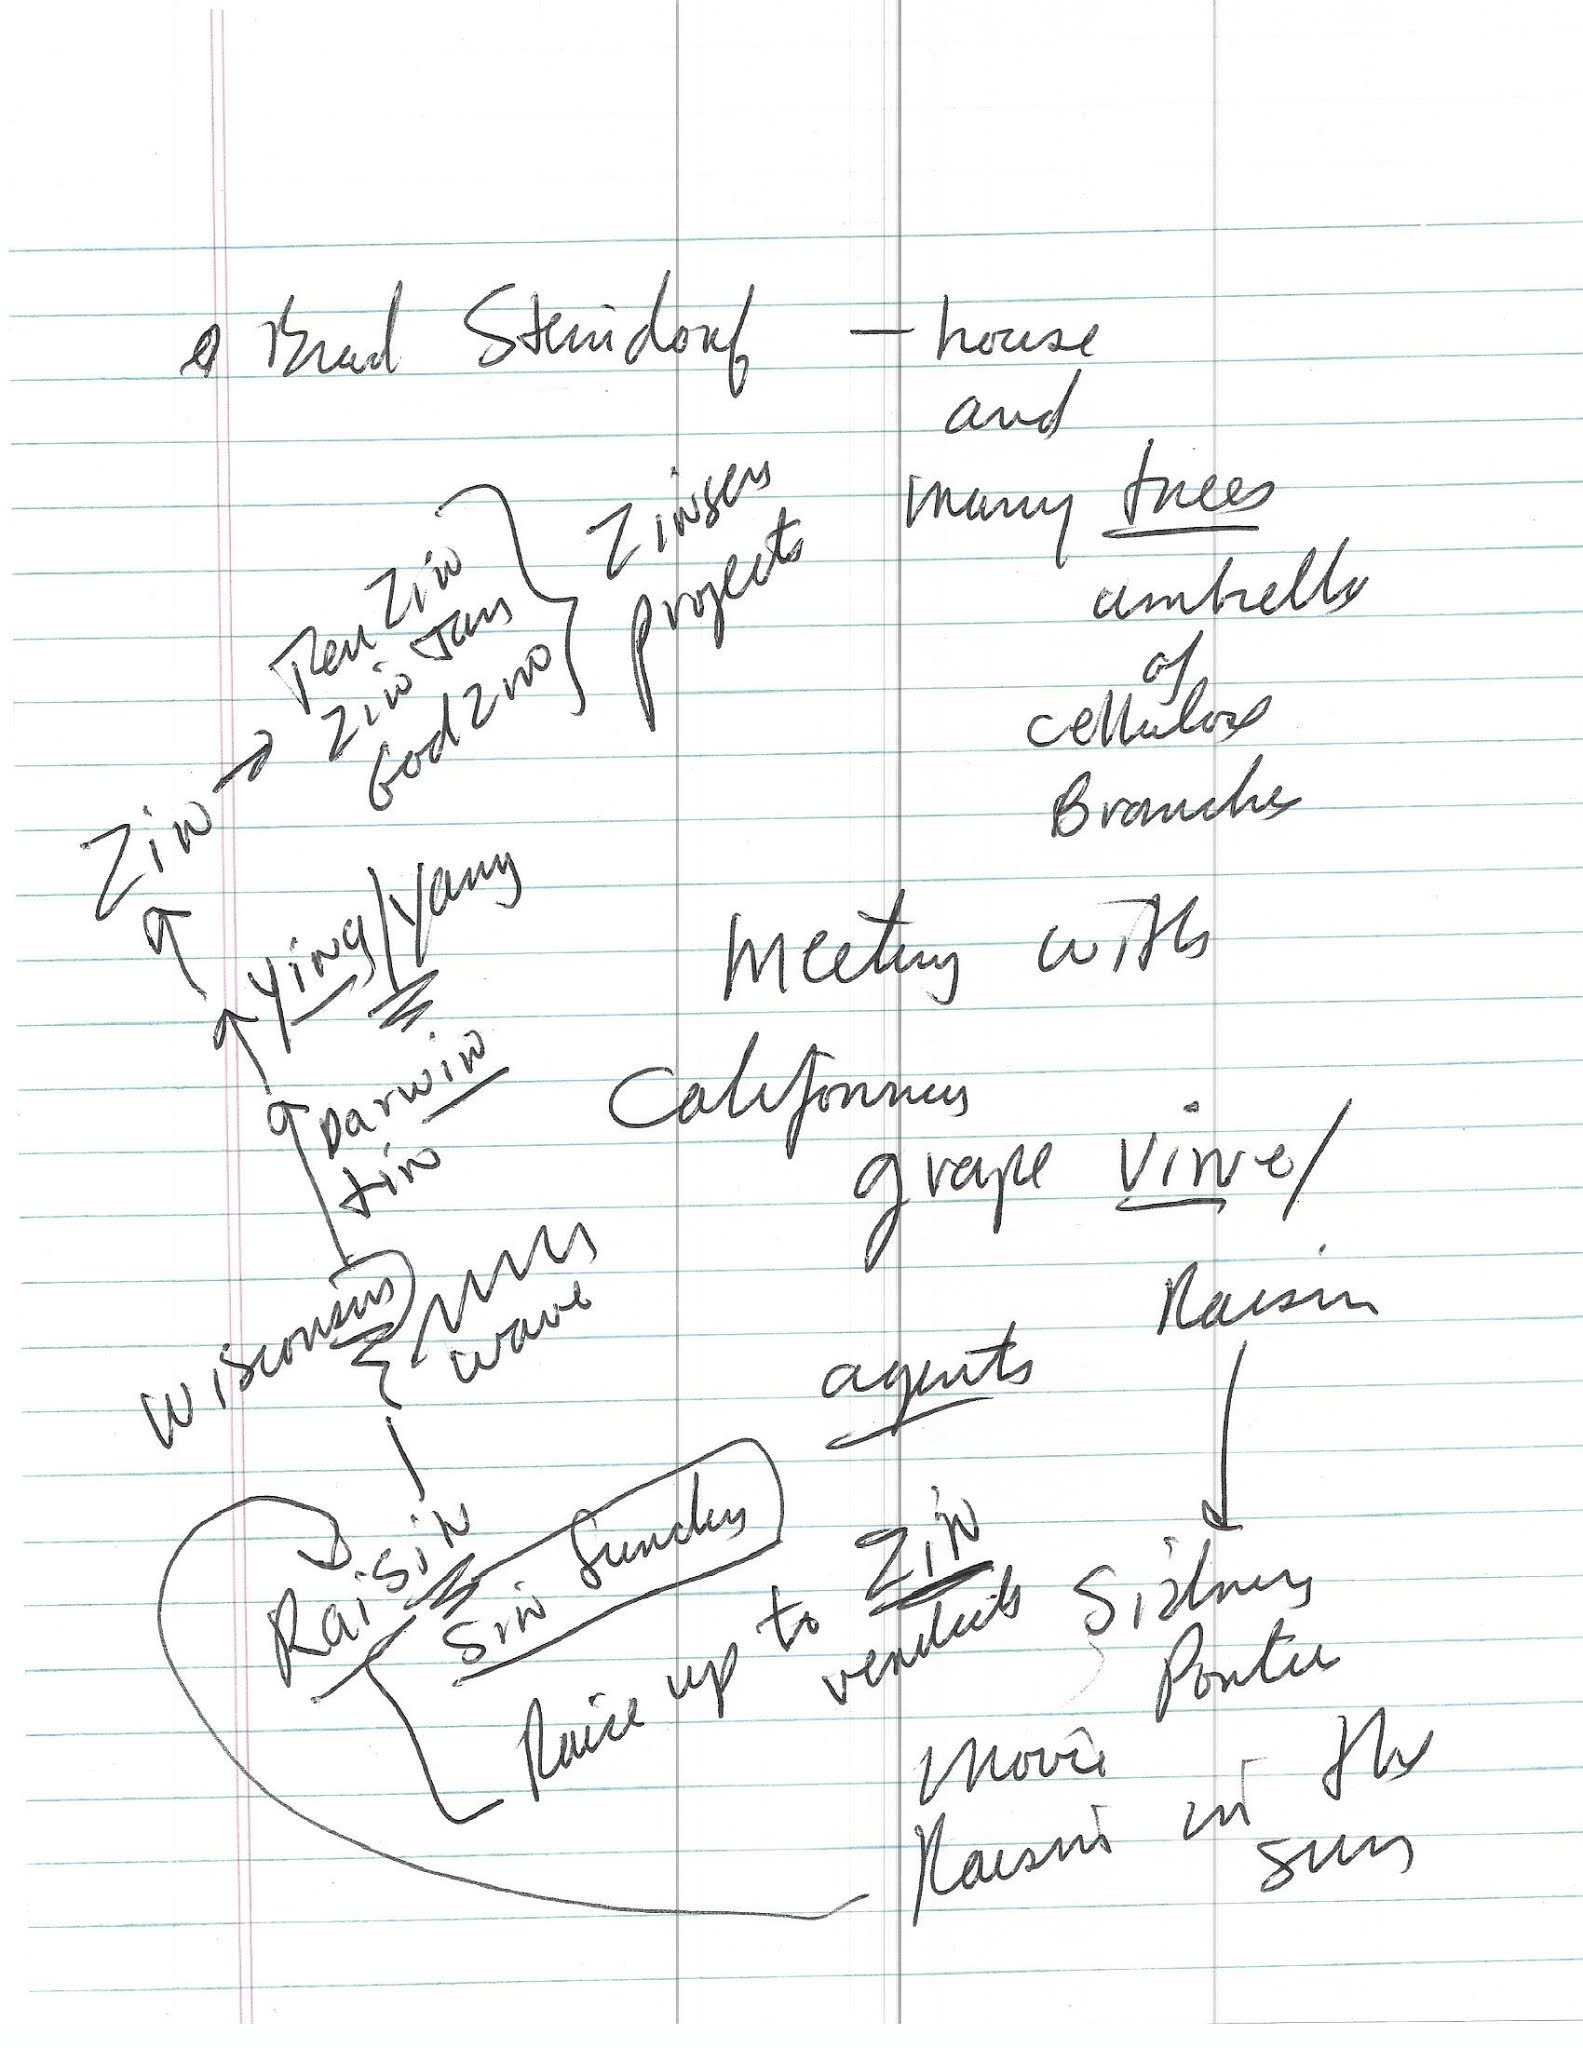 Brad Steindorf — house
and
many trees
umbrella
of
cellulose
Branches
Meeting with
California
grape vine/
Raisin
agents
Sidney
Movie
Raisin in the
sun
Zinsen
projects
Zin
Zin
GodZno
Zin →
Ying/Yang
Darwin
tin
Wisconsin
wave
Raisin
Sin Sunday
Raise up to Zin